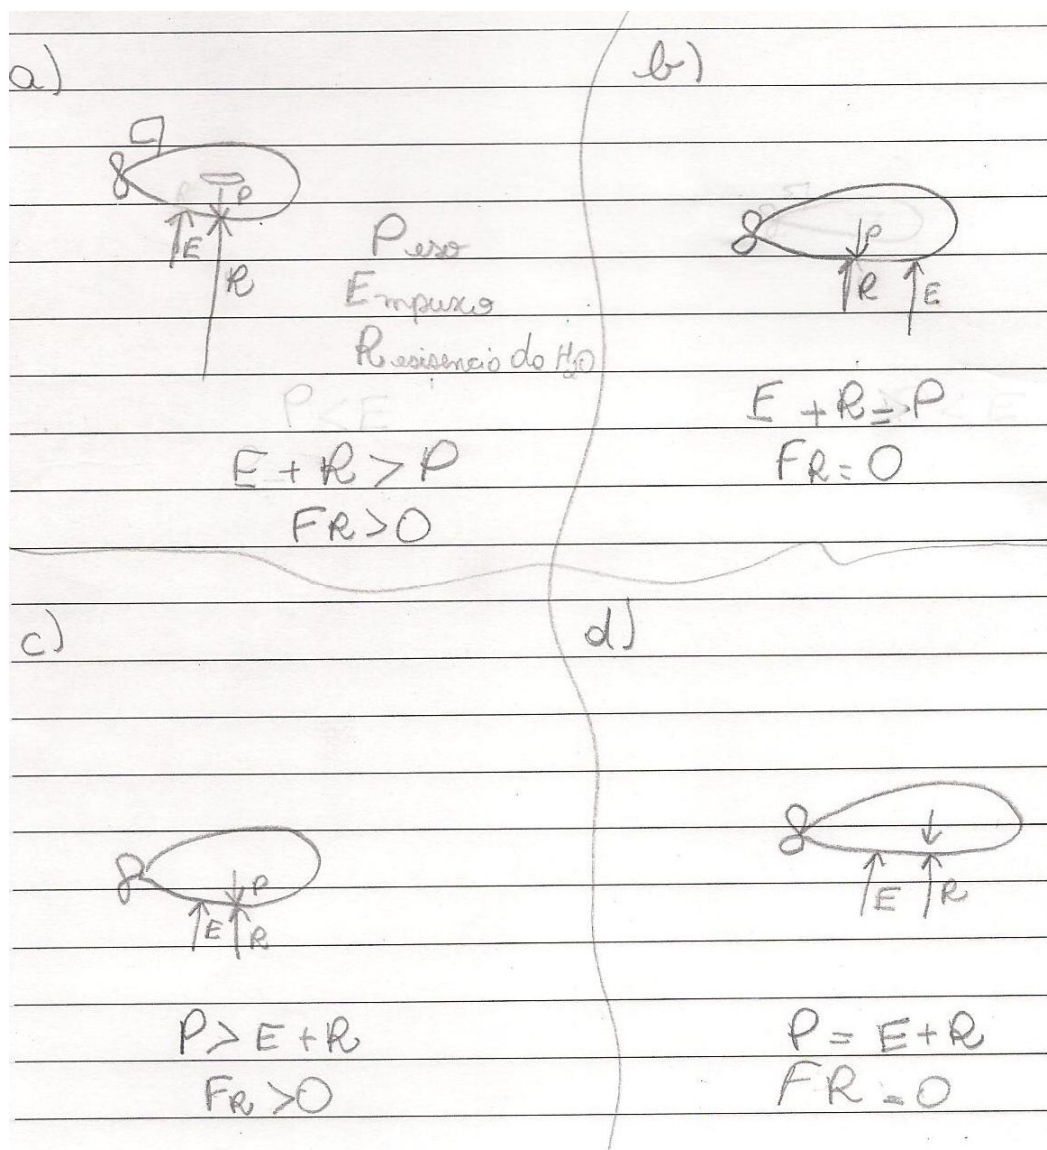 a)
P
E
R
Peso
Empuxo
Resisencia do H2O
P<E
E + R > P
FR > O
b)
P
R
E
E + R = P
FR = O
c)
P
E
R
P > E + R
FR > O
d)
E
R
P = E + R
FR = O